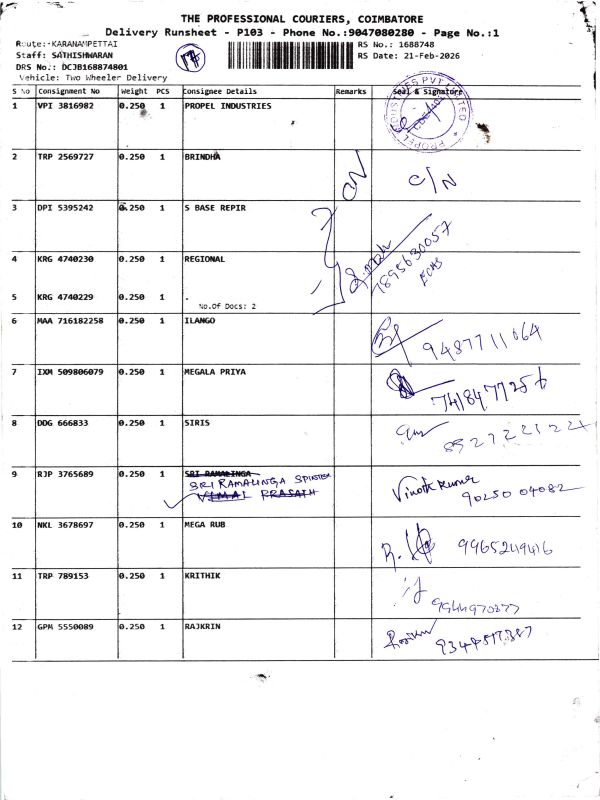 THE PROFESSIONAL COURIERS, COIMBATORE
Delivery Runsheet - P103 - Phone No.:9047080280 - Page No.:1
Route:-KARANAMPETTAI
Staff: SATHISHWARAN
DRS No.: DCJB168874801
Vehicle: Two Wheeler Delivery
RS No.: 1688748
RS Date: 21-Feb-2026
S No Consignment No Weight PCS Consignee Details Remarks Seal & Signature
1 VPI 3816982 0.250 1 PROPEL INDUSTRIES
2 TRP 2569727 0.250 1 BRINDHA C/N
3 DPI 5395242 0.250 1 S BASE REPIR
7895630057
4 KRG 4740230 0.250 1 REGIONAL
5 KRG 4740229 0.250 1 .
No.Of Docs: 2
6 MAA 716182258 0.250 1 ILANGO
9487711064
7 IXM 509806079 0.250 1 MEGALA PRIYA
7418477256
8 DDG 666833 0.250 1 SIRIS
9 RJP 3765689 0.250 1 SRI RAMALINGA
SRI RAMALINGA
VIMAL PRASATH
Vinoth Kumar
90250 04082
10 NKL 3678697 0.250 1 MEGA RUB
9965249416
11 TRP 789153 0.250 1 KRITHIK
9944970277
12 GPM 5550089 0.250 1 RAJKRIN